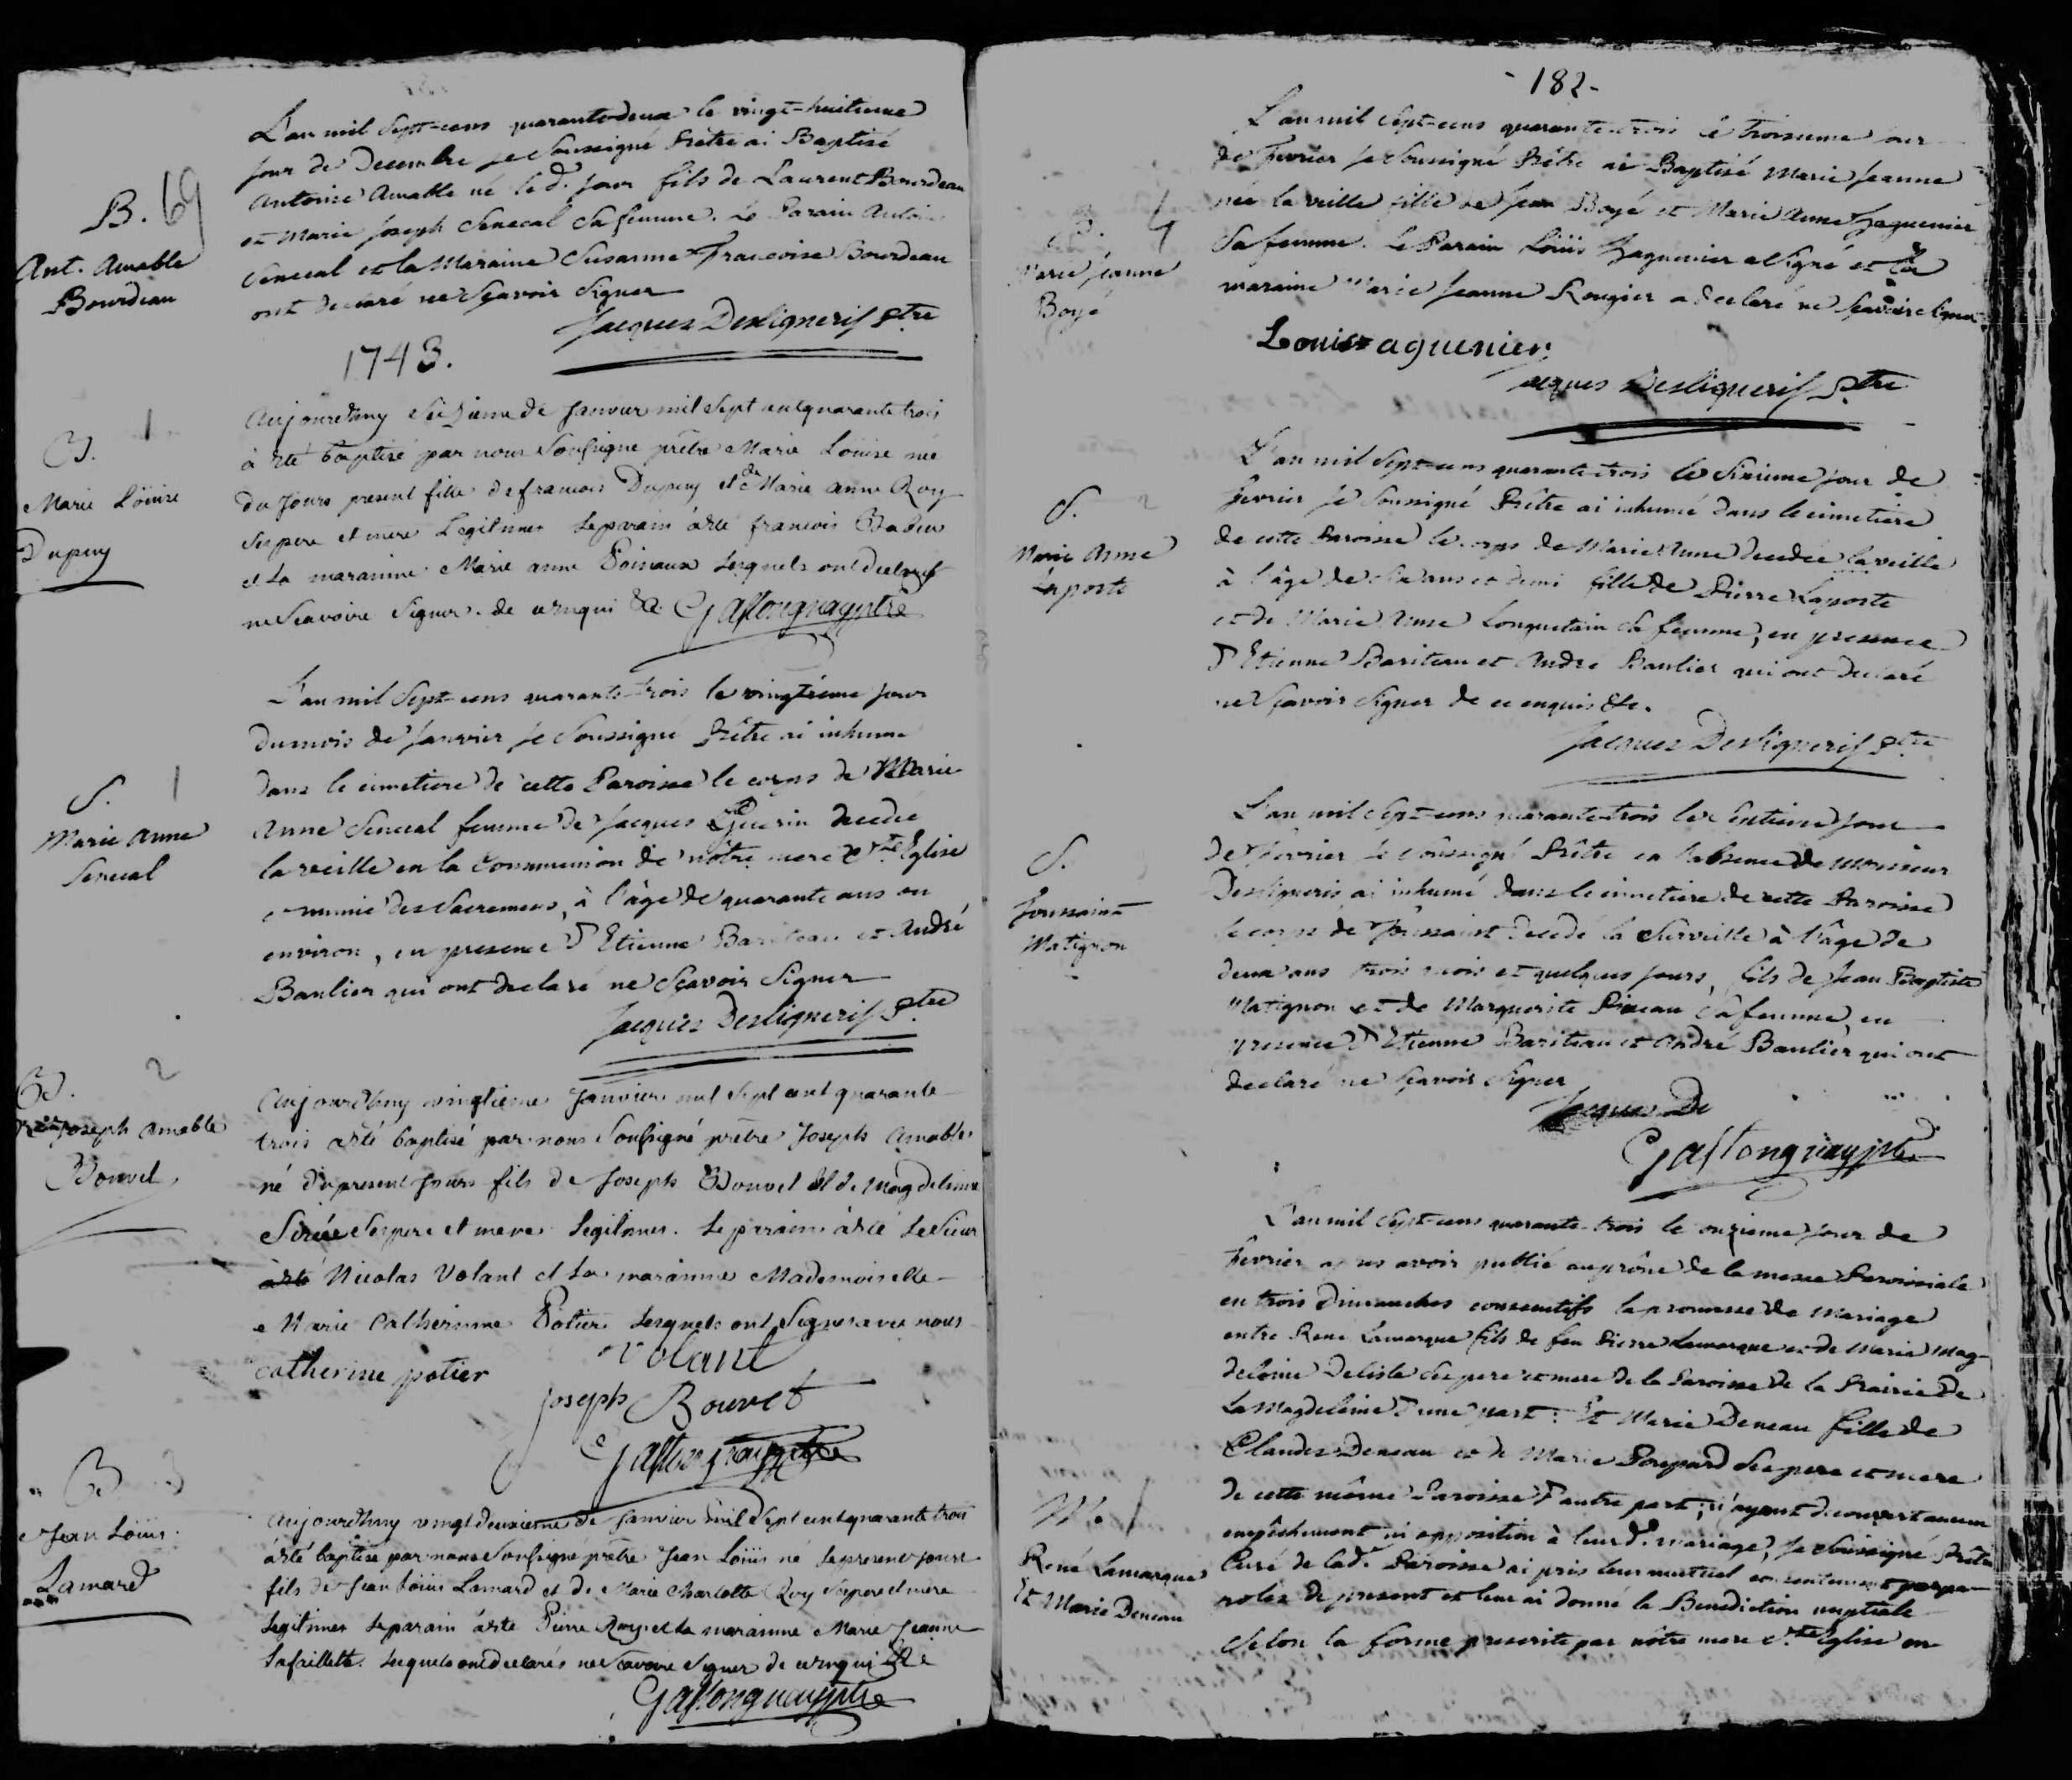 B. 69
Ant. Amable
Bourdeau
L'an mil sept-cens quarante-deux le vingt-huitieme
jour de Decembre je soussigné Prêtre ai Baptisé
Antoine Amable né led. jour fils de Laurent Bourdeau
et Marie Joseph Senecal sa femme. Le Parain Antoine
Senecal et la Maraine Susanne Françoise Bourdeau
ont declaré ne sçavoir signer
Jacques Desligneris Ptre
1743.
B. 1
Marie Löuise
Dupuy
Aujourdhuy seizieme de Janvier mil sept cent quarante trois
à esté baptisé par nous soussigné prêtre Marie Löuise née
du Jours present fille de francois Dupuy et de Marie anne Roy
ses pere et mere Legitimes le parain à esté francois
et la maraine Marie anne Poineaux lesquels ont declarés
ne scavoire signer. de ce enqui &a. Gastonguay ptre
S. 1
Marie Anne
Senecal
L'an mil sept-cens quarante-trois le vingtiéme jour
du mois de Janvier je soussigné Prêtre ai inhumé
dans le cimetiere de cette Paroisse le corps de Marie
Anne Senecal femme de Jacques Guerin decedée
la veille en la Communion de nôtre mere Ste Eglise
munie des Sacremens, à l'âge de quarante ans ou
environ, en presence d'Etienne Bariteau et André
Baulier qui ont declaré ne sçavoir signer
Jacques Desligneris Ptre
B. 2
Joseph Amable
Bouvet
Aujourdhuy vingtieme Janvier mil sept cent quarante
trois a esté baptisé par nous soussigné prêtre Joseph Amable
né du present jours fils de Joseph Bouvet et de Magdeleinne
Sirée ses pere et mere legitimes. le parain à esté le sieur
à esté Nicolas Volant et la marainne Mademoiselle
Marie Catherinne Potier lesquels ont signes avec nous
catherine potier Volant
joseph Bouvet
Gastonguay ptre
B 3
Jean Löuis
Lamard
Aujourdhuy vingt deuxieme de Janvier mil sept cent quarante trois
à esté baptise par nous soussigne prêtre Jean Löuis né le present jours
fils de Jean Löuis Lamard et de Marie Charlotte Roy ses pere et mere
legitimes le parain à esté Pierre Roy et la marainne Marie Jeanne
Lafaillette. lesquels ont declarés ne scavoire signer de ce enqui &a
Gastonguay ptre
- 182 -
B. 4
Marie Jeanne
Boyé
L'an mil sept-cens quarante-trois le troisieme jour
de Fevrier je soussigné Prêtre ai Baptisé Marie Jeanne
née la veille fille de Jean Boyé et Marie Anne Gaguenier
sa femme. Le Parain Löuis Gaguenier a signé et la
maraine Marie Jeanne Rougier a declaré ne sçavoir signer
Louis gaguenier
Jacques Desligneris Ptre
S. 2
Marie Anne
Laporte
L'an mil sept-cens quarante-trois le sixieme jour de
Fevrier je soussigné Prêtre ai inhumé dans le cimetiere
de cette Paroisse le corps de Marie Anne decedée la veille
à l'âge de six ans et demi fille de Pierre Laporte
et de Marie Anne Longuetain sa femme, en presence
d'Etienne Bariteau et André Baulier qui ont declaré
ne sçavoir signer de ce enquis &c.
Jacques Desligneris Ptre
S.
Toussaint
Matignon
L'an mil sept-cens quarante-trois le septieme jour
de Fevrier je soussigné Prêtre en l'absence de Monsieur
Desligneris ai inhumé dans le cimetiere de cette Paroisse
le corps de Toussaint decedé la surveille à l'âge de
deux ans trois mois et quelques jours, fils de Jean Baptiste
Matignon et de Marguerite Pineau sa femme, en
presence d'Etienne Bariteau et André Baulier qui ont
declaré ne sçavoir signer
Jacques De
Gastonguay ptre
M. 1
René Lamarque
Et Marie Deneau
L'an mil sept-cens quarante-trois le onzieme jour de
Fevrier apres avoir publié au prône de la messe Paroissiale
en trois Dimanches consecutifs la promesse de Mariage
entre René Lamarque fils de feu Pierre Lamarque et de Marie Mag-
deleine Delisle ses pere et mere de la Paroisse de la Prairie de
la Magdeleine d'une part: Et Marie Deneau fille de
Claude Deneau et de Marie Poupard ses pere et mere
de cette même Paroisse d'autre part; n'ayant decouvert aucun
empêchement ni opposition à leurd. mariage, je soussigné Prêtre
Curé de lad. Paroisse ai pris leur mutuel consentement par pa-
roles de present et leur ai donné la Benediction nuptiale
selon la forme prescrite par nôtre mere Ste Eglise en